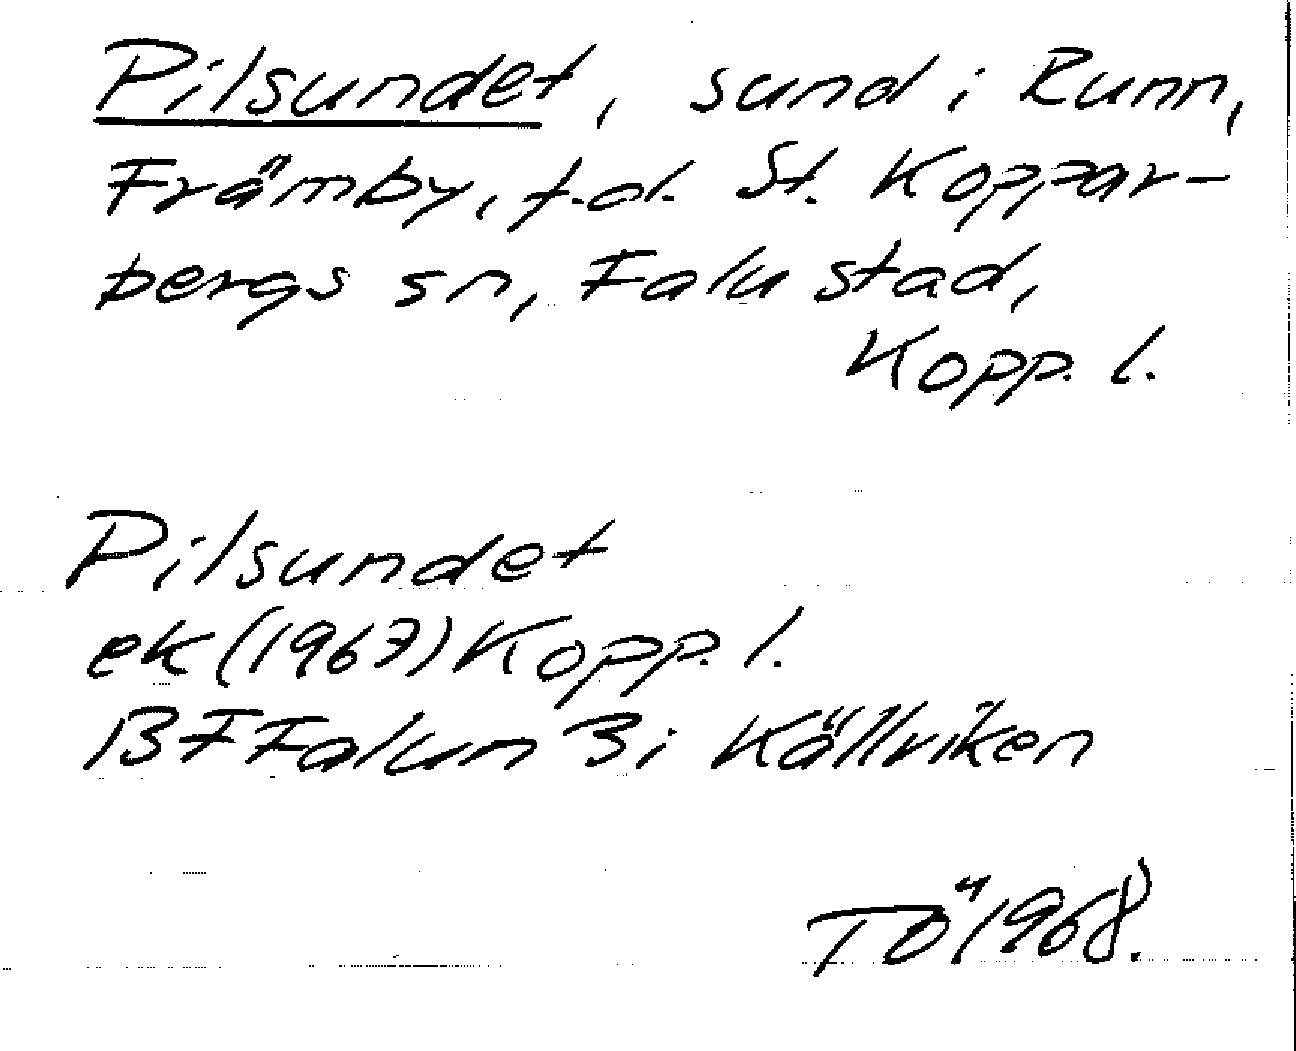 Pilsundet, sund i Runn,
Främby, f.d. St. Koppar-
bergs sn, Falu stad,
Kopp. l.
Pilsundet
ek (1967) Kopp. l.
BF Falun 3; Källviken
TÖ 1968.